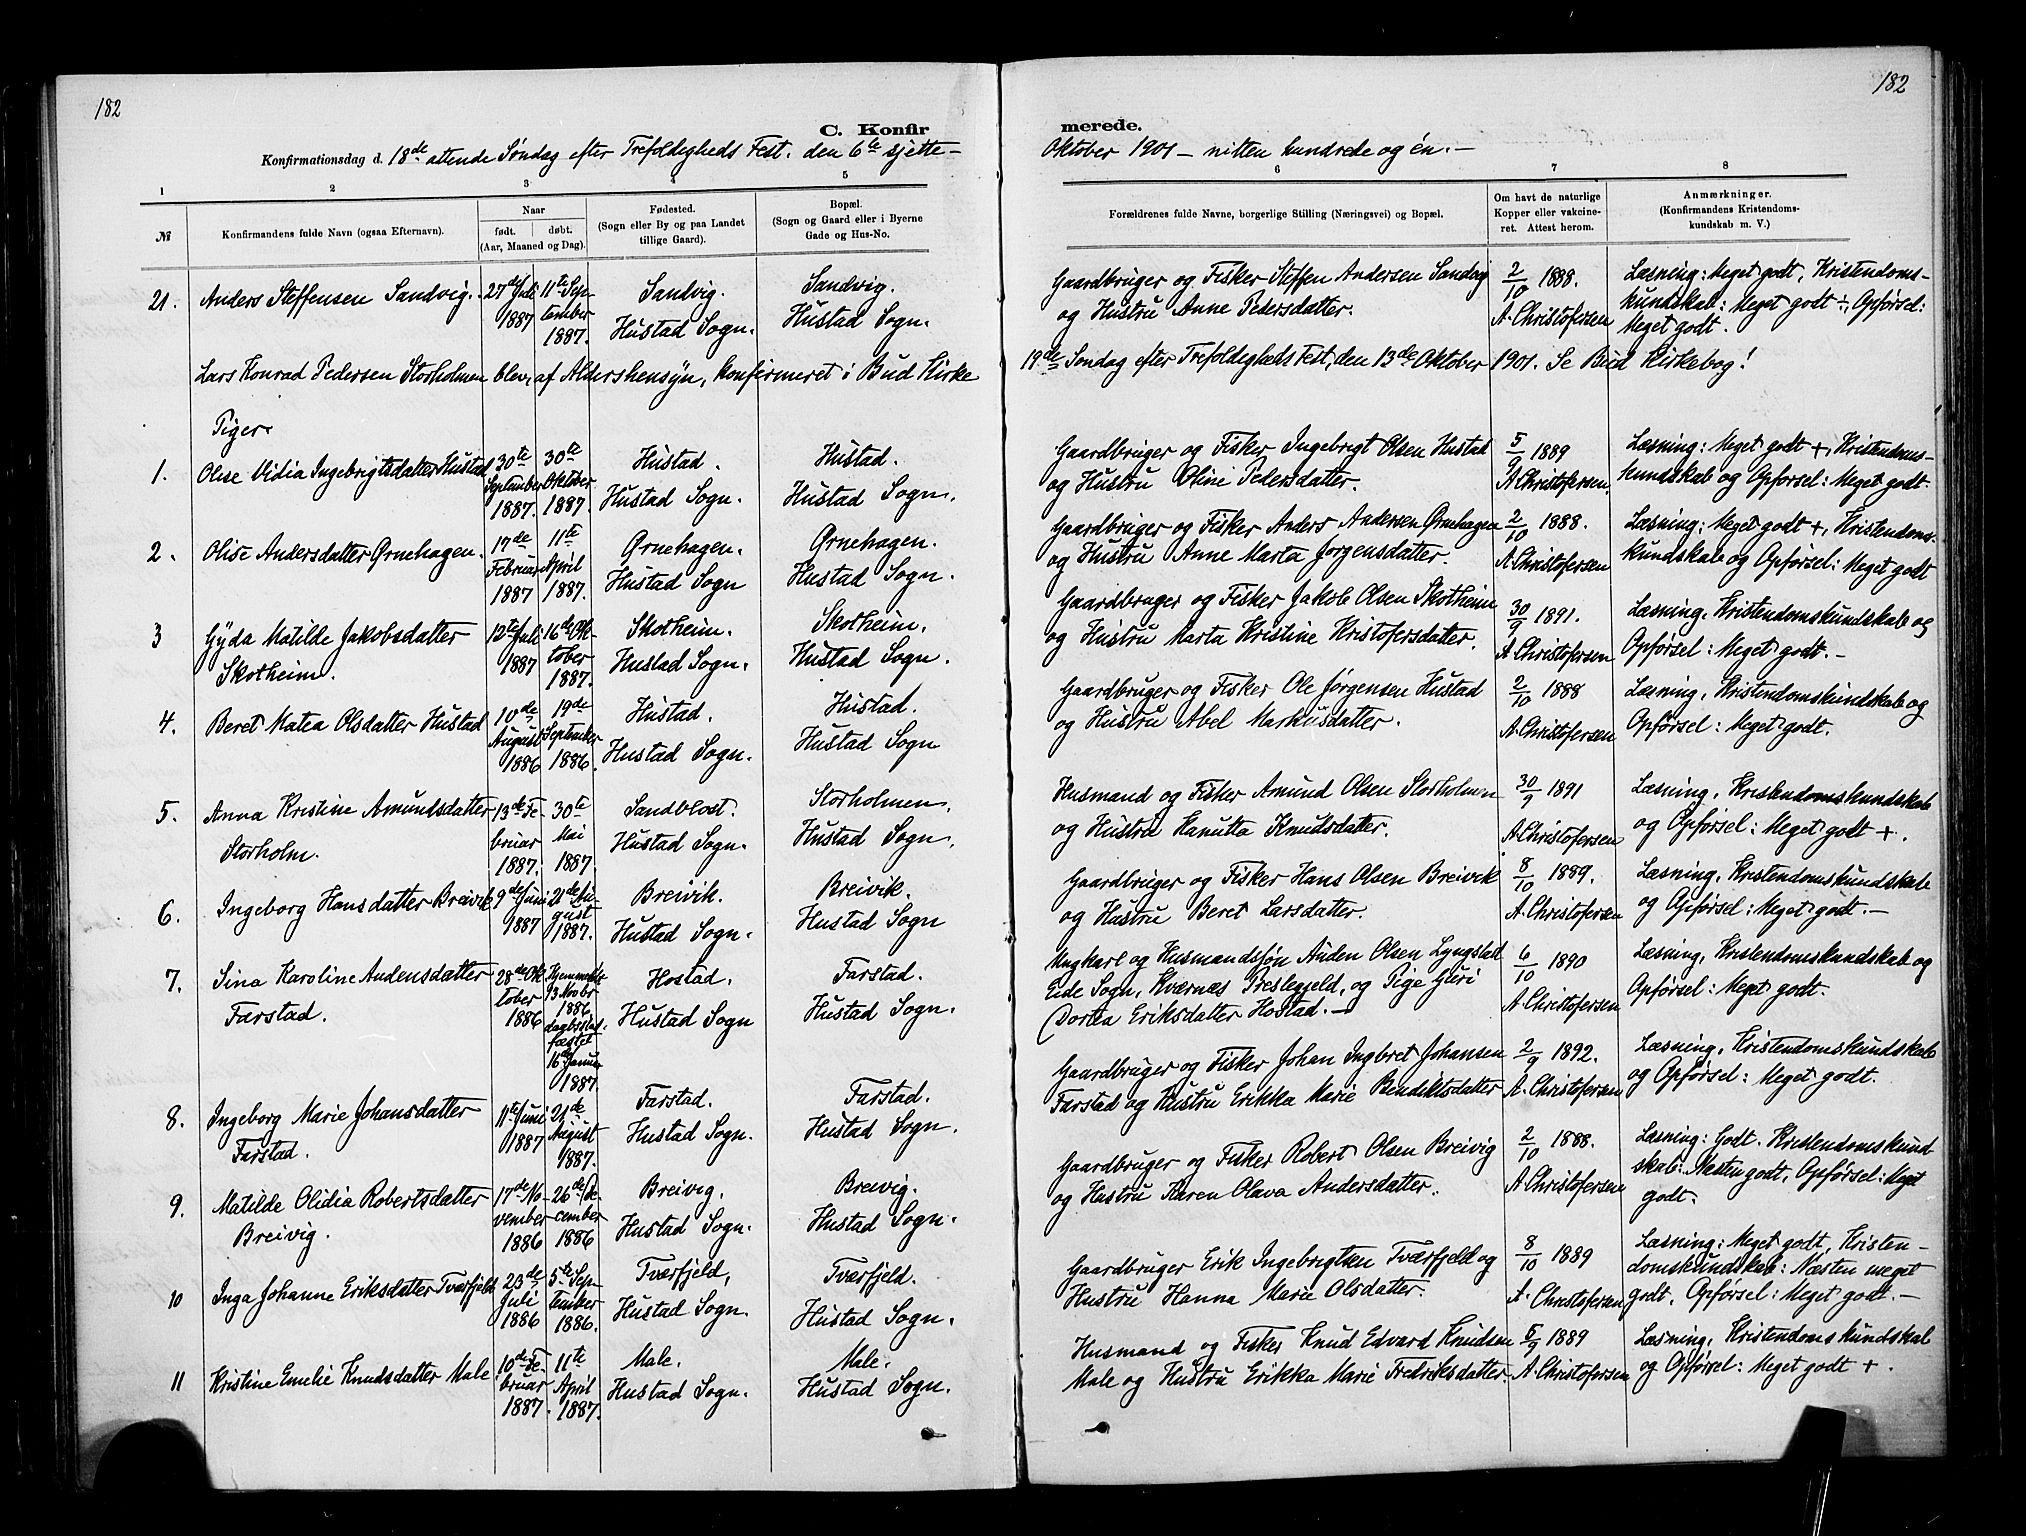 182
C. Konfir
Konfirmationsdag d. 18de attende Søndag efter Trefoldigheds Fest. den 6te sjette -
1 2 3 4 5
№
Konfirmandens fulde Navn (ogsaa Efternavn).
Naar
født. døbt.
(Aar, Maaned og Dag).
Fødested.
(Sogn eller By og paa Landet
tillige Gaard).
Bopæl.
(Sogn og Gaard eller i Byerne
Gade og Hus-No.
21. Anders Steffensen Sandvig. 27de Juli 11te Sep- Sandvig. Sandvig.
1887 tember Hustad Sogn. Hustad Sogn.
1887.
Lars Konrad Pedersen Storholmen blev, af Aldershensyn, konfirmeret i Bud Kirke
Piger.
1. Olise Vidia Ingebrigtsdatter Hustad 30te 30te Hustad. Hustad.
September Oktober Hustad Sogn. Hustad Sogn.
1887. 1887.
2. Olise Andersdatter Ørnehagen. 17de 11te Ørnehagen. Ørnehagen.
Februar April Hustad Sogn Hustad Sogn.
1887 1887.
3 Gyda Matilde Jakobsdatter 12te Juli 16de Ok- Skotheim. Skotheim.
Skotheim. 1887 tober Hustad Sogn. Hustad Sogn.
1887.
4. Beret Matea Olsdatter Hustad 10de 19de Hustad. Hustad.
August September Hustad Sogn. Hustad Sogn
1886 1886.
5. Anna Kristine Amundsdatter 13de Fe- 30te Sandblost. Storholmen.
Storholm. bruar Mai Hustad Sogn. Hustad Sogn.
1887. 1887
6. Ingeborg Hansdatter Breivik 9de Juni 21de Au- Breivik. Breivik.
1887 gust Hustad Sogn. Hustad Sogn
1887.
7. Sina Karoline Audensdatter 28de Ok Hjemmedøbt Hostad. Farstad.
Farstad. tober 13 Novbr Hustad Sogn Hustad Sogn.
1886 1886
daabsstad-
fæstet
16de Januar
1887.
8. Ingeborg Marie Johansdatter 11te Juni 21de Farstad. Farstad.
Farstad. 1887 August Hustad Sogn. Hustad Sogn.
1887.
9. Matilde Olidia Robertsdatter 17de No- 26de De- Breivig. Breivig.
Breivig. vember cember Hustad Sogn. Hustad Sogn.
1886 1886
10 Inga Johanne Eriksdatter Tværfjeld 23de 5te Sep- Tværfjeld, Tværfjeld.
Juli tember Hustad Sogn. Hustad Sogn.
1886 1886.
11 Kristine Emelie Knudsdatter Male. 10de Fe- 11te Male. Male.
bruar April Hustad Sogn. Hustad Sogn.
1887. 1887.
182
merede.
Oktober 1901 - nitten hundrede og én. -
6 7 8
Forældrenes fulde Navne, borgerlige Stilling (Næringsvei) og Bopæl.
Om havt de naturlige
Kopper eller vakcine-
ret. Attest herom.
Anmærkninger.
(Konfirmandens Kristendoms-
kundskab m. V.)
Gaardbruger og Fisker Steffen Andersen Sandvig 2/10 1888. Læsning: Meget godt, Kristendoms-
og Hustru Anne Pedersdatter. A. Christofersen kundskab: Meget godt ÷, Opførsel:
Meget godt.
19de Søndag efter Trefoldigheds Fest, den 13de Oktober 1901. Se Bud Kirkebog!
Gaardbruger og Fisker Ingebrigt Olsen Hustad 5/9 1889 Læsning: Meget godt +, Kristendoms-
og Hustru Oline Pedersdatter. A. Christofersen. kundskab og Opførsel: Meget godt.
Gaardbruger og Fisker Anders Andersen Ørnehagen 2/10 1888. Læsning: Meget godt +, Kristendoms-
og Hustru Anne Marta Jørgensdatter. A. Christofersen kundskab og Opførsel: Meget godt
Gaardbruger og Fisker Jakob Olsen Skotheim 30/9 1891. Læsning, Kristendomskundskab og
og Hustru Marta Kristine Kristofersdatter. A. Christofersen Opførsel: Meget godt. -
Gaardbruger og Fisker Ole Jørgensen Hustad 2/10 1888 Læsning, Kristendomskundskab og
og Hustru Abel Markusdatter. A. Christofersen Opførsel: Meget godt.
Husmand og Fisker Amund Olsen Storholmen 30/9 1891 Læsning, Kristendomskundskab
og Hustru Hanutta Knudsdatter. A. Christofersen og Opførsel: Meget godt +.
Gaardbruger og Fisker Hans Olsen Breivik 8/10 1889. Læsning, Kristendomskundskab
og Hustru Beret Larsdatter. A. Christofersen og Opførsel: Meget godt. -
Ungkarl og Husmandssøn Auden Olsen Lyngstad 6/10 1890 Læsning, Kristendomskundskab og
Eide Sogn, Kværnæs Præstegjeld, og Pige Guri A. Christofersen Opførsel: Meget godt.
Dortea Eriksdatter Hostad. -
Gaardbruger og Fisker Johan Ingbret Johansen 2/9 1892. Læsning, Kristendomskundskab
Farstad og Hustru Erikka Marie Bendiktsdatter A. Christofersen og Opførsel: Meget godt.
Gaardbruger og Fisker Robert Olsen Breivig 2/10 1888. Læsning: Godt. Kristendomskund
og Hustru Karen Olava Andersdatter. A. Christofersen skab: Næsten godt, Opførsel: Meget
godt.
Gaardbruger Erik Ingebrigtsen Tværfjeld og 8/10 1889 Læsning: Meget godt, Kristen-
Hustru Hanna Marie Olsdatter. A. Christofersen domskundskab: Næsten meget
godt, Opførsel: Meget godt. -
Husmand og Fisker Knud Edvard Knudsen 5/9 1889 Læsning, Kristendomskundskab
Male og Hustru Erikka Marie Fredriksdatter. A. Christofersen og Opførsel: Meget godt +.